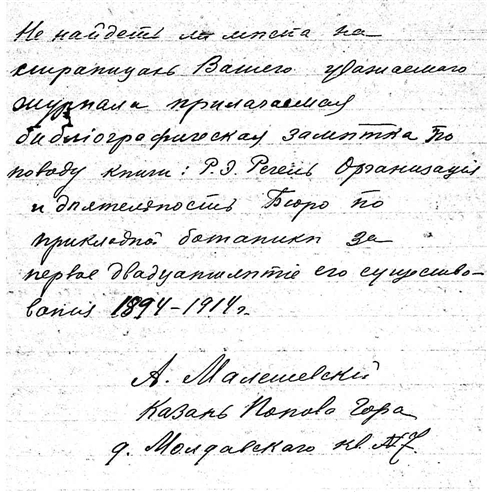 Не найдетъ ли мѣста на
страницахъ Вашего уважаемаго
журнала прилагаемая
библіографическая замѣтка по
поводу книги: Р. Э. Регель Организація
и дѣятельность Бюро по
прикладной ботаники за
первое двадцатилѣтіе его существо-
ванія 1894-1914 г.
А. Малешевскій
Казань Попова Гора
д. Молдавскаго кв. №7.